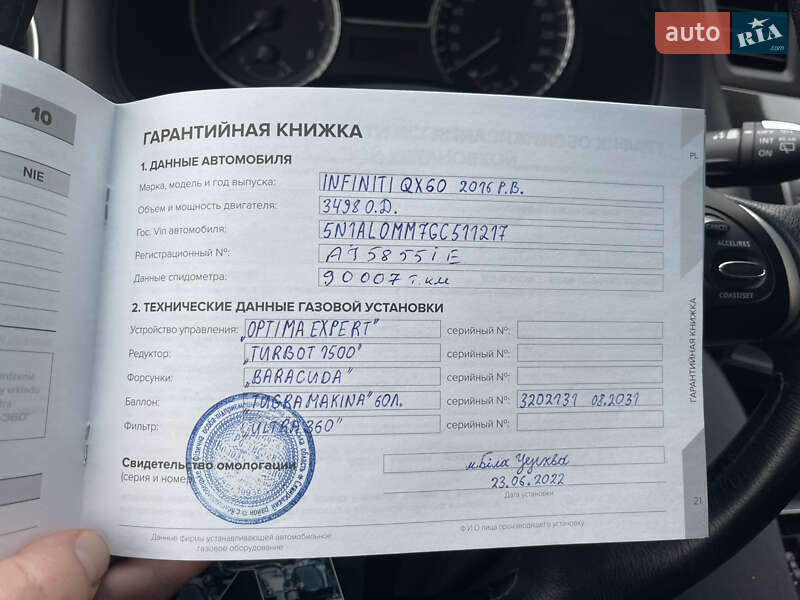 auto RIA.com
10
NIE
ГАРАНТИЙНАЯ КНИЖКА
1. ДАННЫЕ АВТОМОБИЛЯ
Марка, модель и год выпуска: INFINITI QX60 2016 Р.В.
Объем и мощность двигателя: 3498 О.Д.
Гос. Vin автомобиля: 5N1AL0MM7GC511217
Регистрационный №: AI5855IE
Данные спидометра: 90007 т.км
2. ТЕХНИЧЕСКИЕ ДАННЫЕ ГАЗОВОЙ УСТАНОВКИ
Устройство управления: „OPTIMA EXPERT" серийный №:
Редуктор: „TURBOT 1500" серийный №:
Форсунки: „BARACUDA" серийный №:
Баллон: „TUGRAMAKINA" 60Л. серийный №: 3202131 08.2031
Фильтр: „ULTRA 360" серийный №:
Свидетельство омологации
(серия и номер)
м.Біла Церква
23.06.2022
Дата установки
Данные фирмы устанавливающей автомобильное
газовое оборудование
Ф И О лица производящего установку
PL
ГАРАНТИЙНАЯ КНИЖКА
21
INT
ON
CANCEL
ACCEL/RES
COAST/SET